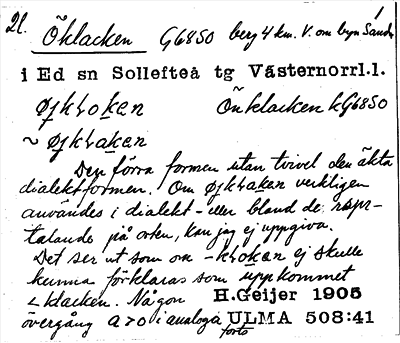 21. Öklacken G6850 berg 4 km. V. om byn Sånd
i Ed sn Sollefteå tg Västernorrl.l.
Öklacken kG6850
~
Den förra formen utan tvivel den äkta
dialektformen. Om verkligen
användes i dialekt - eller bland de, rspr-
talande på orten, kan jag ej uppgiva.
Det ser ut som om ej skulle
kunna förklaras som uppkommet
< klacken. Någon H.Geijer 1905
övergång a>o i analoga ULMA 508:41